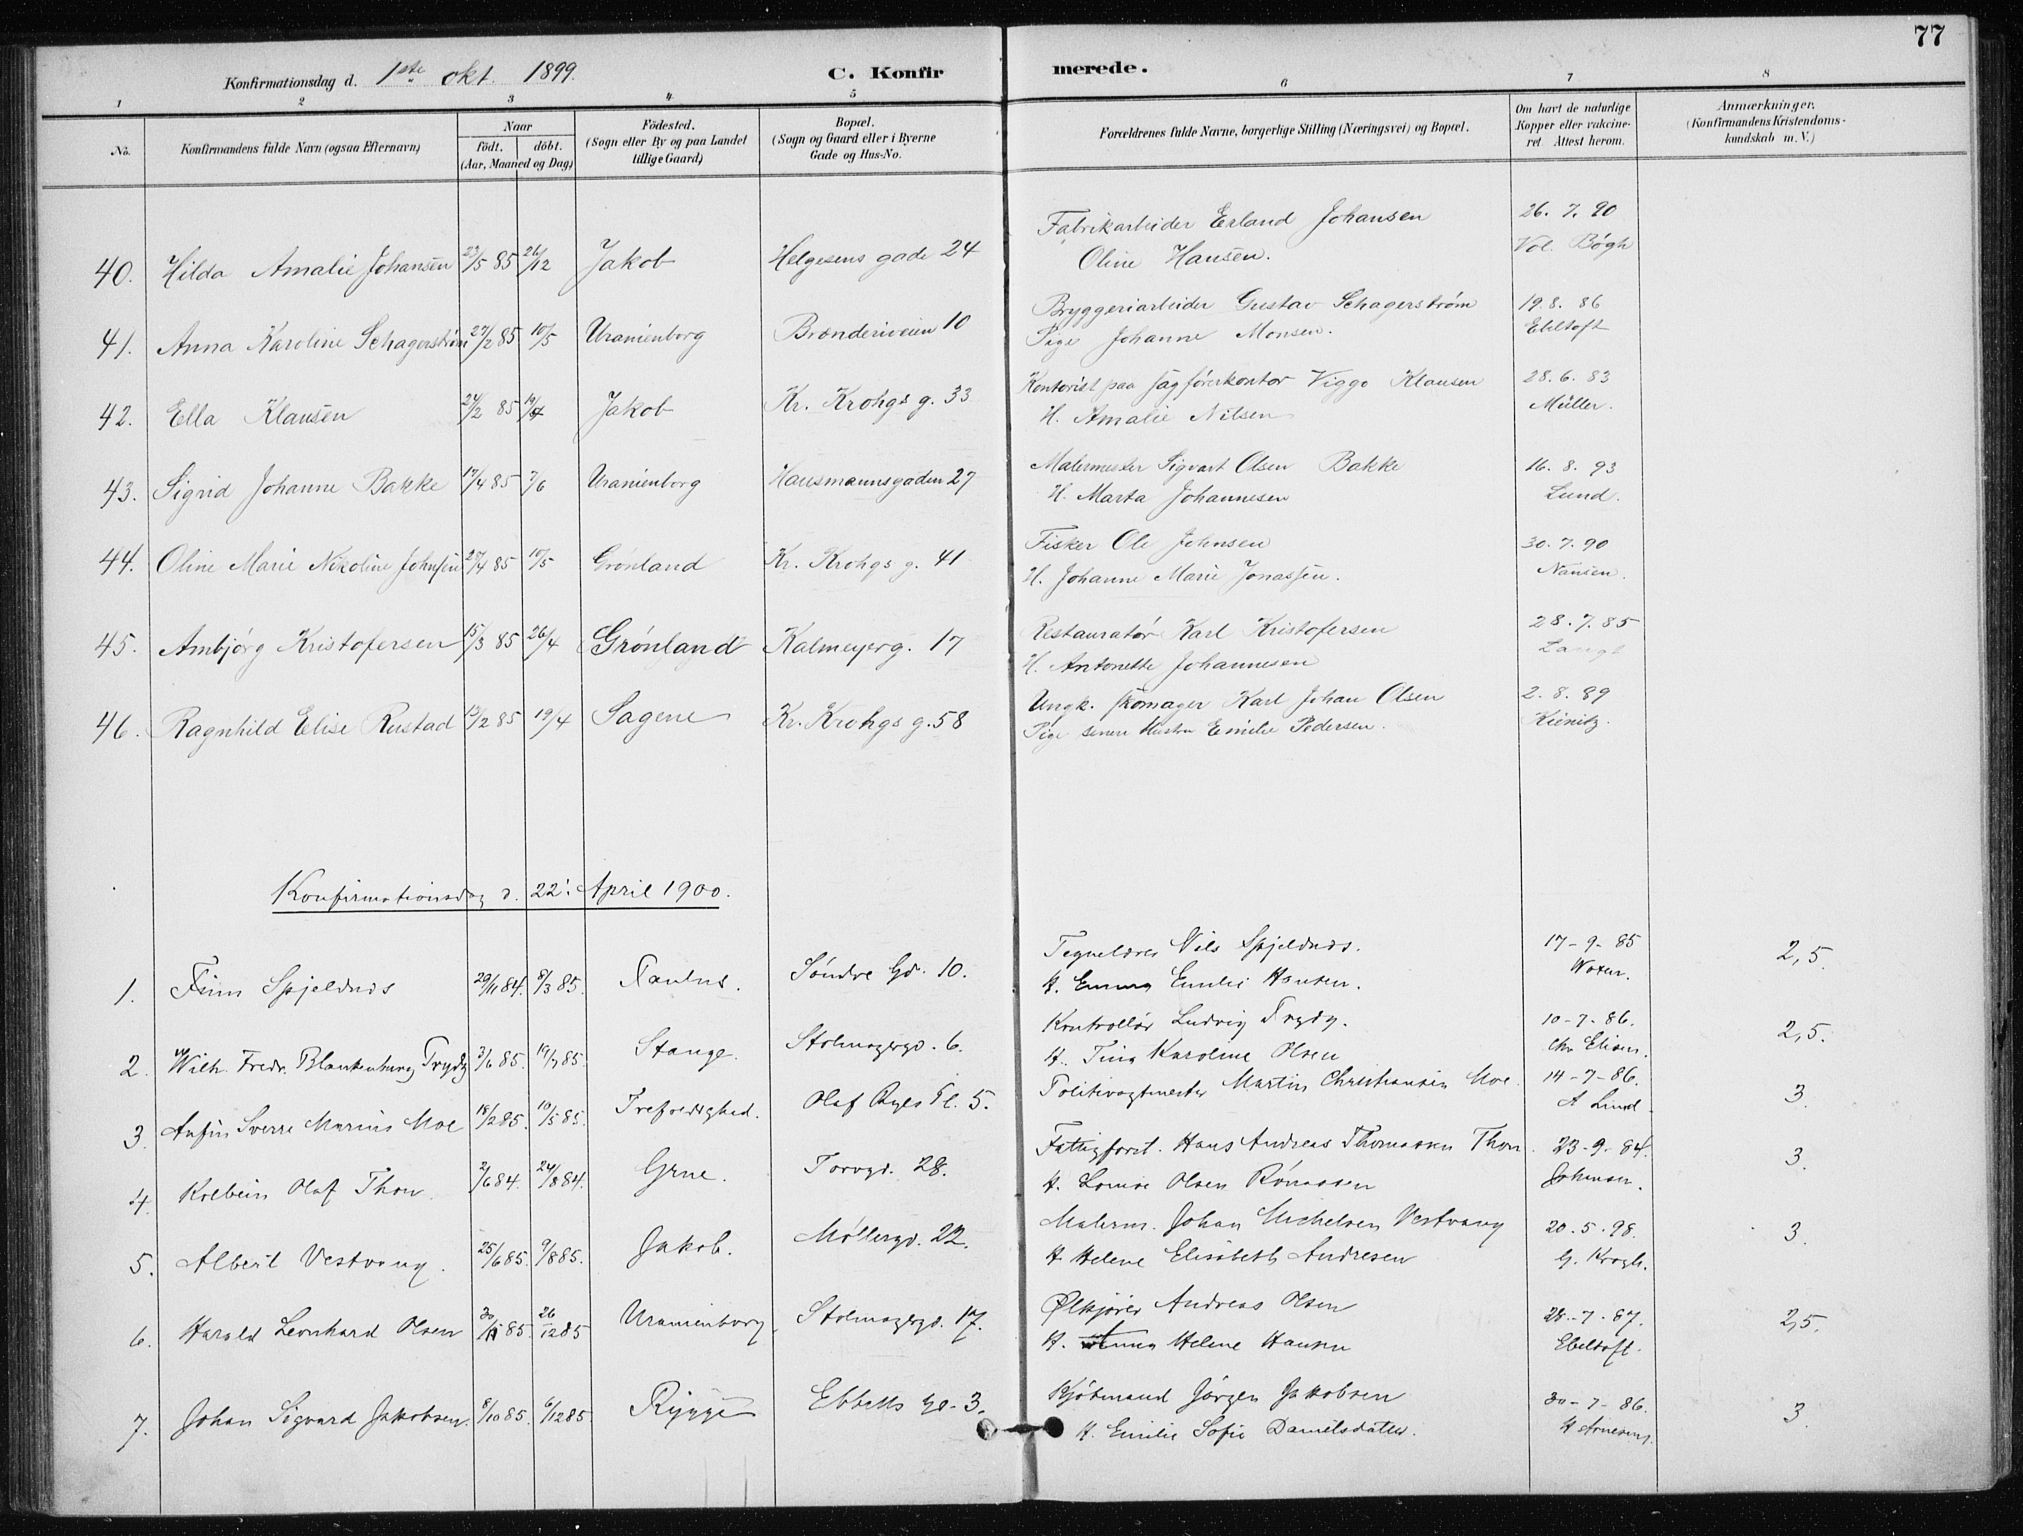 77
Konfirmationsdag d. 1ste okt. 1899.
C. Konfirmerede.
1 2 3 4 5 6 7 8
No. Konfirmandens fulde Navn (ogsaa Efternavn) Naar födt. döbt. (Aar, Maaned og Dag) Födested. (Sogn eller By og paa Landet tillige Gaard) Bopæl. (Sogn og Gaard eller i Byerne Gade og Hus-No. Forældrenes fulde Navne, borgerlige Stilling (Næringsvei) og Bopæl. Om havt de naturlige Kopper eller vakcineret Attest herom. Anmærkninger. (Konfirmandens Kristendomskundskab m. V.)
Fabrikarbeider Erland Johansen 26. 7. 90
40. Hilda Amalie Johansen 23/5 85 26/12 Jakob Helgesens gade 24 Oline Hansen. Vol. Bøgh
Bryggeriarbeider Gustav Schagerstrøm 19.8. 86
41. Anna Karoline Schagerstrøm 27/2 85 10/5 Uranienborg Brænderiveien 10 Pige Johanne Monsen. Ebeltoft
Kontorist paa Sagførerkontor Viggo Klausen 28. 6. 83
42. Ella Klausen 24/2 85 19/4 Jakob Kr. Krohgs g. 33 H. Amalie Nilsen Müller.
Malermester Sigvart Olsen Bakke 16. 8. 93
43. Sigrid Johanne Bakke 17/4 85 7/6 Uranienborg Hausmannsgaden 27 H. Marta Johannesen Lund.
Fisker Ole Johnsen 30. 7. 90
44. Oline Marie Nikoline Johnsen 27/4 85 10/5 Grønland Kr. Krohgs g. 41 H. Johanne Marie Jonassen. Nansen.
Restauratør Karl Kristofersen 28. 7. 85
45. Ambjørg Kristofersen 15/3 85 26/4 Grønland Kalmeyerg. 17 H. Antonette Johannesen
Ungk. skomager Karl Johan Olsen 2. 8. 89
46. Ragnhild Elise Rustad 13/2 85 19/4 Sagene Kr. Krohgs g. 58 Pige senere Hustru Emilie Pedersen. Kienitz.
Konfirmationsdag d. 22. April 1900.
Tegnelærer Nils Spjeldnæs. 17-9-85
1. Finn Spjeldnæs 29/11 84. 8/3 85. Paulus. Søndre Gd. 10. H. Emma Emilie Hansen. 2,5.
Kontrollør Ludvig Trydg. 10-7-86.
2. Wilh. Fredr. Blankenburg Trydg 3/6 85. 19/7 85. Stange. Stolmagergd. 6. H. Tina Karoline Olsen Chr Elisen. 2,5.
Politivagtmester Martin Christiansen Moe. 14-7-86.
3. Anfin Sverre Marius Moe 18/2 85. 10/5 85. Trefoldighed. Olaf Ryes Pl. 5. A Lund 3.
Fattigforst. Hans Andreas Thomassen Thon. 23-9-84.
4. Kolbein Olaf Thon. 2/6 84. 24/8 84. Grue. Torvgd. 28. H. Lovise Olsen Rønaasen Johansen. 3.
Malerm. Johan Michelsen Vestvang 20. 5. 98.
5. Albert Vestvang. 25/6 85. 9/8 85. Jakob. Møllergd. 22. H. Helene Elisabeth Andresen G. Krogh. 3.
Ølkjører Andreas Olsen 28-7-87.
6. Harald Leonhard Olsen 30/11 85. 26/12 85 Uranienborg, Stolmagergd. 17. H. Anna Helene Hansen Ebeltoft. 2,5.
Kjøbmand Jørgen Jakobsen 30-7-86.
7. Johan Sigvard Jakobsen. 8/10 85. 6/12 85. Rygge Ebbells Gd. 3. H. Emilie Sofie Danielsdatter. H Arnesen. 3.